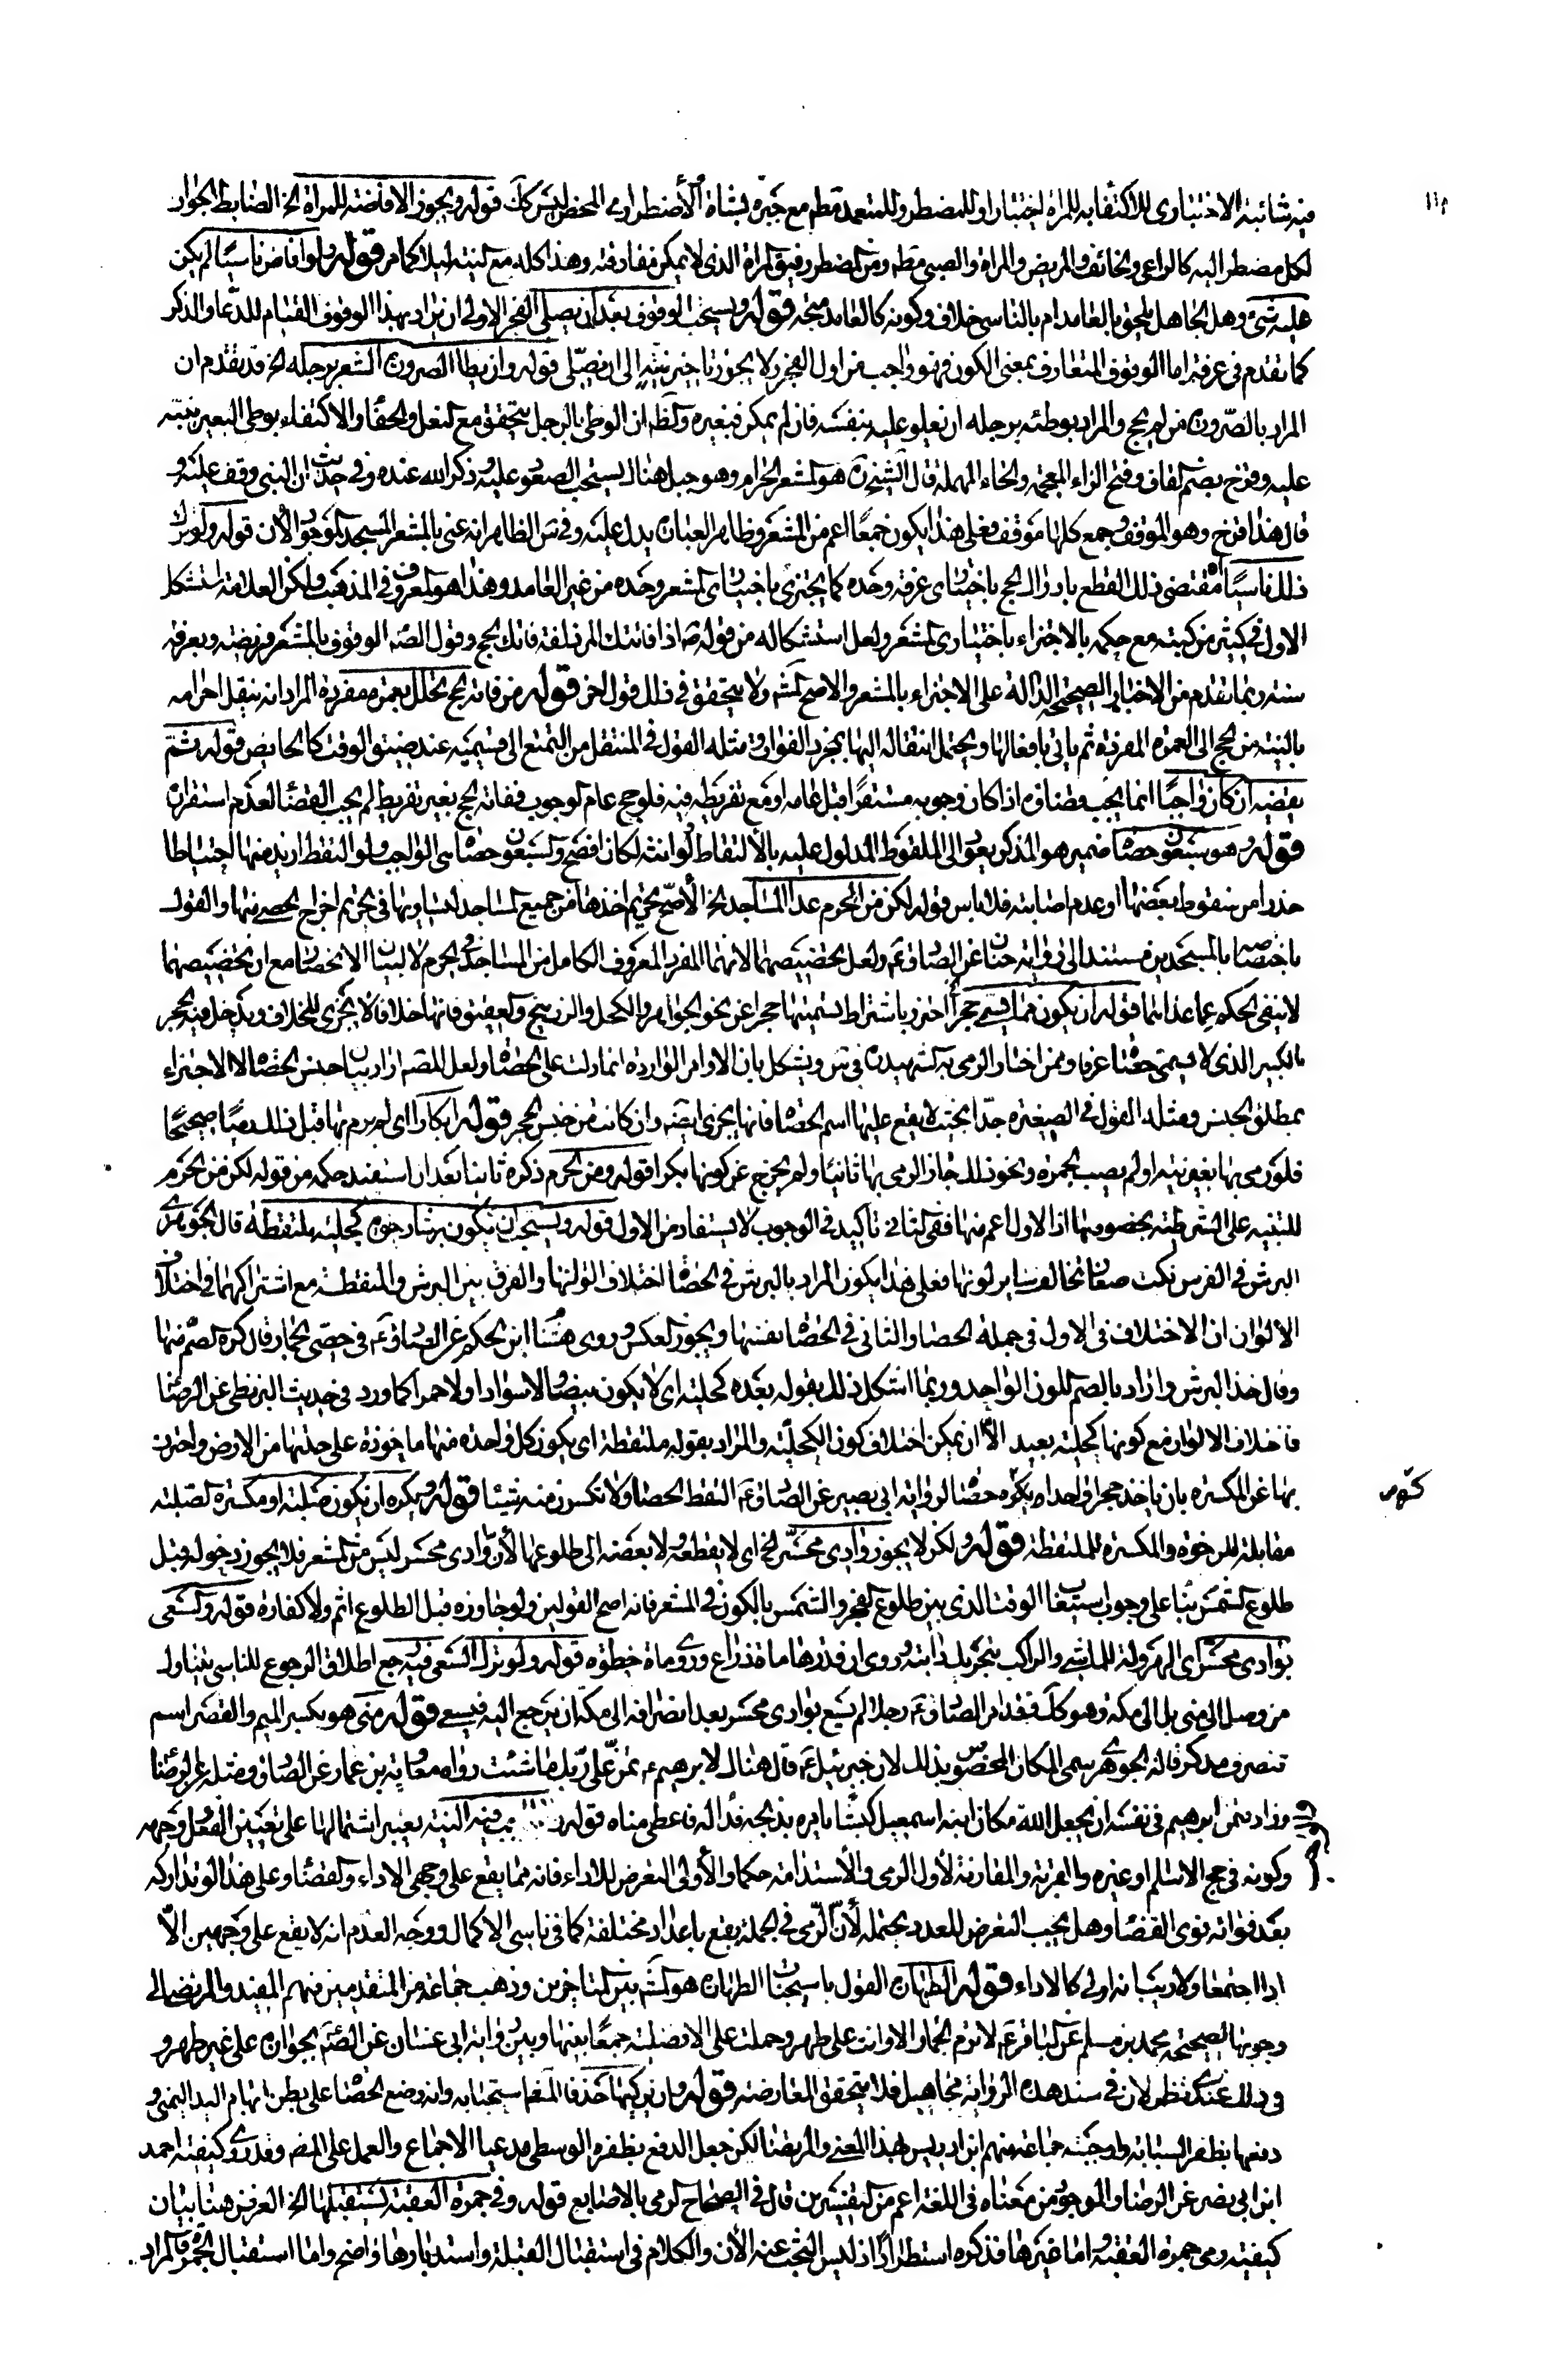 فيه شائبة الاختياري للاكتفاء به للمرأة اختيارا وللمضطر وللمتعمد مطم مع جبره بشاة والاضطراري المحض ليس كك قوله ويجوز الافاضة للمرأة الخ الضابط الجواز
لكل مضطر اليه كالراعي والخائف والمريض والمراة والصبي مطم ومن المضطر رفيق المراة الذي لا يمكن مفارقته وهذا كله مع نيته ليلا كما مر قوله ولو افاض ناسيا لم يكن
عليه شئ وهل الجاهل يلحق بالعامد ام بالناسي خلاف وكونه كالعامد متجه قوله ويستحب الوقوف بعد ان يصلي الفجر الاولى ان يراد بهذا الوقوف القيام للدعاء والذكر
كما تقدم في عرفة اما الوقوف المتعارف بمعنى الكون فهو واجب من اول الفجر ولا يجوز تاخير نيته الى ان يصلي قوله وان يطا الصرورة المشعر برجله الخ قد تقدم ان
المراد بالصرورة من لم يحج والمراد بوطئه برجله ان يعلو عليه بنفسه فان لم يمكن فببعيره والظ ان الوطي بالرجل يتحقق مع النعل والخف والاكتفاء بوطي البعير بنبه
عليه وقزح بضم القاف وفتح الزاء المعجمة والحاء المهملة قال الشيخ ره هو المشعر الحرام وهو جبل هناك يستحب الصعود عليه وذكر الله عنده وفي حديث ان النبي وقف عليه و
قال هذا قزح وهو الموقف وجمع كلها موقف فعلى هذا يكون جمعا اعم من المشعر وظاهر العبارة يدل عليه وفي س الظاهر انه عنى بالمشعر المسجد الموجود الان قوله ولو ترك
ذلك ناسيا مقتضى ذلك القطع بادراك الحج باختياري عرفة وحده كما يجتزئ باختياري المشعر وحده من غير العامد وهذا هو المعروف في المذهب ولكن العلامة استشكل
الاول في كثير من كتبه مع حكمه بالاجتزاء باختياري المشعر ولعل استشكاله من قوله ص اذا فاتتك المزدلفة فاتك الحج وقول الصم الوقوف بالمشعر فريضة وبعرفة
سنة ربما تقدم من الاخبار الصحيحة الدالة على الاجتزاء بالمشعر والاصح المش ولا يتحقق في ذلك قول اخر قوله من فاته الحج تحلل بعمرة مفردة المراد انه ينقل احرامه
بالنية من الحج الى العمرة المفردة ثم ياتي بافعالها ويحتمل انتقاله اليها بمجرد الفوات ومثله القول في المنتقل من التمتع الى قسيميه عند ضيق الوقت كالحايض قوله ثم
يقضيه ان كان واجبا انما يجب قضاؤه اذا كان وجوبه مستقرا قبل عامه او مع تفريطه فيه فلو حج عام الوجوب ففاته الحج بغير تفريط لم يجب القضا لعدم استقراره
قوله وهو سبعون حصاة ضمير هو المذكر يعود الى الملقوط المدلول عليه بالالتقاط ولو انثه لكان افصح والسبعون حصاة هي الواجب ولو التقط ازيد منها احتياطا
حذرا من سقوط بعضها او عدم اصابته فلا باس قوله لكن من الحرم عدا المساجد الخ الاصح تحريم اخذها من جميع المساجد لتساويها في تحريم اخراج الحصى منها والقول
باختصاصه بالمسجدين مستند الى رواية حنان عن الصادق ع ولعل تخصيصهما لانهما الفرد المعروف الكامل من المساجد في الحرم لا لبيان الانحصار مع ان تخصيصهما
لا ينفي الحكم عما عداهما قوله ان يكون مما يسمى حجرا احترز باشتراط تسميتها حجرا عن نحو الجواهر والكحل والزرنيخ والعقيق فانها خلافا لا يجزي للخلاف ويدخل فيه الحجر
الكبير الذي لا يسمى حصاة عرفا وممن اختار الرمي به الشهيد ره في س ويشكل بان الاوامر الواردة انما دلت على الحصاة ولعل المصم اراد بيان جنس الحصا لا الاجتزاء
بمطلق الجنس ومثله القول في الصغيرة جدا بحيث لا يقع عليها اسم الحصاة فانها لا يجزي ايضم وان كانت من جنس الحجر قوله ابكارا اي لم يرم بها قبل ذلك رميا صحيحا
فلو رمى بها بغير نية او لم يصب الجمرة ونحو ذلك جاز الرمي بها ثانيا ولم يخرج عن كونها بكرا قوله ومن الحرم ذكره ثانيا بعد ان استفيد حكمه من قوله لكن من الحرم
للتنبيه على الشرطية بخصوصها اذ الاول اعم منها ففي الثاني تاكيد في الوجوب لا يستفاد من الاول قوله ويستحب ان يكون برشا رخوة كحلية ملتقطة قال الجوهري
البرش في الفرس نكت صغار تخالف ساير لونها فعلى هذا يكون المراد بالبرش في الحصاة اختلاف الوانها والفرق بين البرش والمنقطة مع اشتراكهما في اختلاف
الالوان ان الاختلاف في الاول في جملة الحصا والثاني في الحصاة نفسها ويجوز العكس وروى هشام ابن الحكم عن الصادق ع في حصى الجمار قال كره الصم منها
وقال خذ البرش واراد بالصم اللون الواحد وربما اشكل ذلك بقوله بعده كحلية اي لا يكون بيضا ولا سوادا ولا حمرا كما ورد في حديث البزنطي عن الرضا
فاختلاف الالوان مع كونها كحلية بعيد الا ان يمكن اختلاف كون الكحلية والمراد بقوله ملتقطة اي يكون كل واحدة منها ماخوذة على حدتها من الارض واحترز
بها عن المكسرة بان ياخذ حجرا واحدا ويكسره حصا لرواية ابي بصير عن الصادق ع التقط الحصا ولا تكسرن منه شيئا قوله ويكره ان يكون صلبة او مكسرة الصلبة
كسره
مقابلة للرخوة والمكسرة للملتقطة قوله ولكن لا يجوز وادي محسر الخ اي لا يقطعه ولا بعضه الى طلوعها لان وادي محسر ليس من المشعر فلا يجوز دخوله قبل
طلوع الشمس بناء على وجوب استيعاب الوقت الذي بين طلوع الفجر والشمس بالكون في المشعر فانه اصح القولين ولو جاوزه قبل الطلوع اثم ولا كفارة قوله والسعي
بوادي محسر اي الهرولة للماشي والراكب بتحريك دابته وروي ان قدرها ماة ذراع وروي ماة خطوة قوله ولو ترك السعي فيه رجع اطلاق الرجوع للناسي يتناول
من وصل الى منى بل الى مكة وهو كك فقد امر الصادق ع رجلا لم يسع بوادي محسر بعد انصرافه الى مكة ان يرجع اليه فيسعى قوله منى هو بكسر الميم والقصر اسم
تنصرف مذكر قاله الجوهري سمي المكان المخصوص بذلك لان جبرئيل ع قال هناك لابرهيم ع تمن على ربك ما شئت رواه معاوية بن عمار عن الصادق ومثله عن الرضا
وزاد فتمنى ابرهيم في نفسه ان يجعل الله مكان ابنه اسمعيل كبشا يامره بذبحه فداء له فاعطي مناه قوله يجب فيه النية يعتبر اشتمالها على تعيين الفعل ووجهه
وكونه في حج الاسلام او غيره والقربة والمقارنة لاول الرمي والاستدامة حكما والاولى التعرض للاداء فانه مما يقع على وجهي الاداء والقضاء وعلى هذا لو تداركه
بعد فواته نوى القضاء وهل يجب التعرض للعدد يحتمله لان الرمي في الجملة يقع باعداد مختلفة كما في ناسي الاكمال ووجه العدم انه لا يقع على وجهين الا
اذا اجتمعا ولا ريب انه اولى كالاداء قوله الطهارة القول باستحباب الطهارة هو المش بين المتاخرين وذهب جماعة من المتقدمين منهم المفيد والمرتضى الى
وجوبها لصحيحة محمد بن مسلم عن الباقر ع لا ترم الجمار الا وانت على طهر وحملت على الافضلية جمعا بينها وبين رواية ابي غسان عن الصم بجوازه على غير طهر و
في ذلك عندي نظر لان في سند هذه الرواية مجاهيل فلا يتحقق المعارضة قوله وان يرميها خذفا المش استحبابه وانه وضع الحصاة على بطن ابهام اليد اليمنى و
دفعها بظفر السبابة واوجبه جماعة منهم ابن ادريس بهذا المعنى والمرتضى لكن جعل الدفع بظفر الوسطى مدعيا الاجماع والعمل على المش وقد روى كيفيته احمد
ابن ابي نصر عن الرضا والموجود من معناه في اللغة اعم من التفسيرين قال في الصحاح الرمي بالاصابع قوله وفي جمرة العقبة يستقبلها الخ الغرض هنا بيان
كيفية رمي جمرة العقبة واما غيرها فذكره استطرادا اذ ليس البحث عنه الان والكلام في استقبال القبلة واستدبارها واضح واما استقبال الجمرة فالمراد